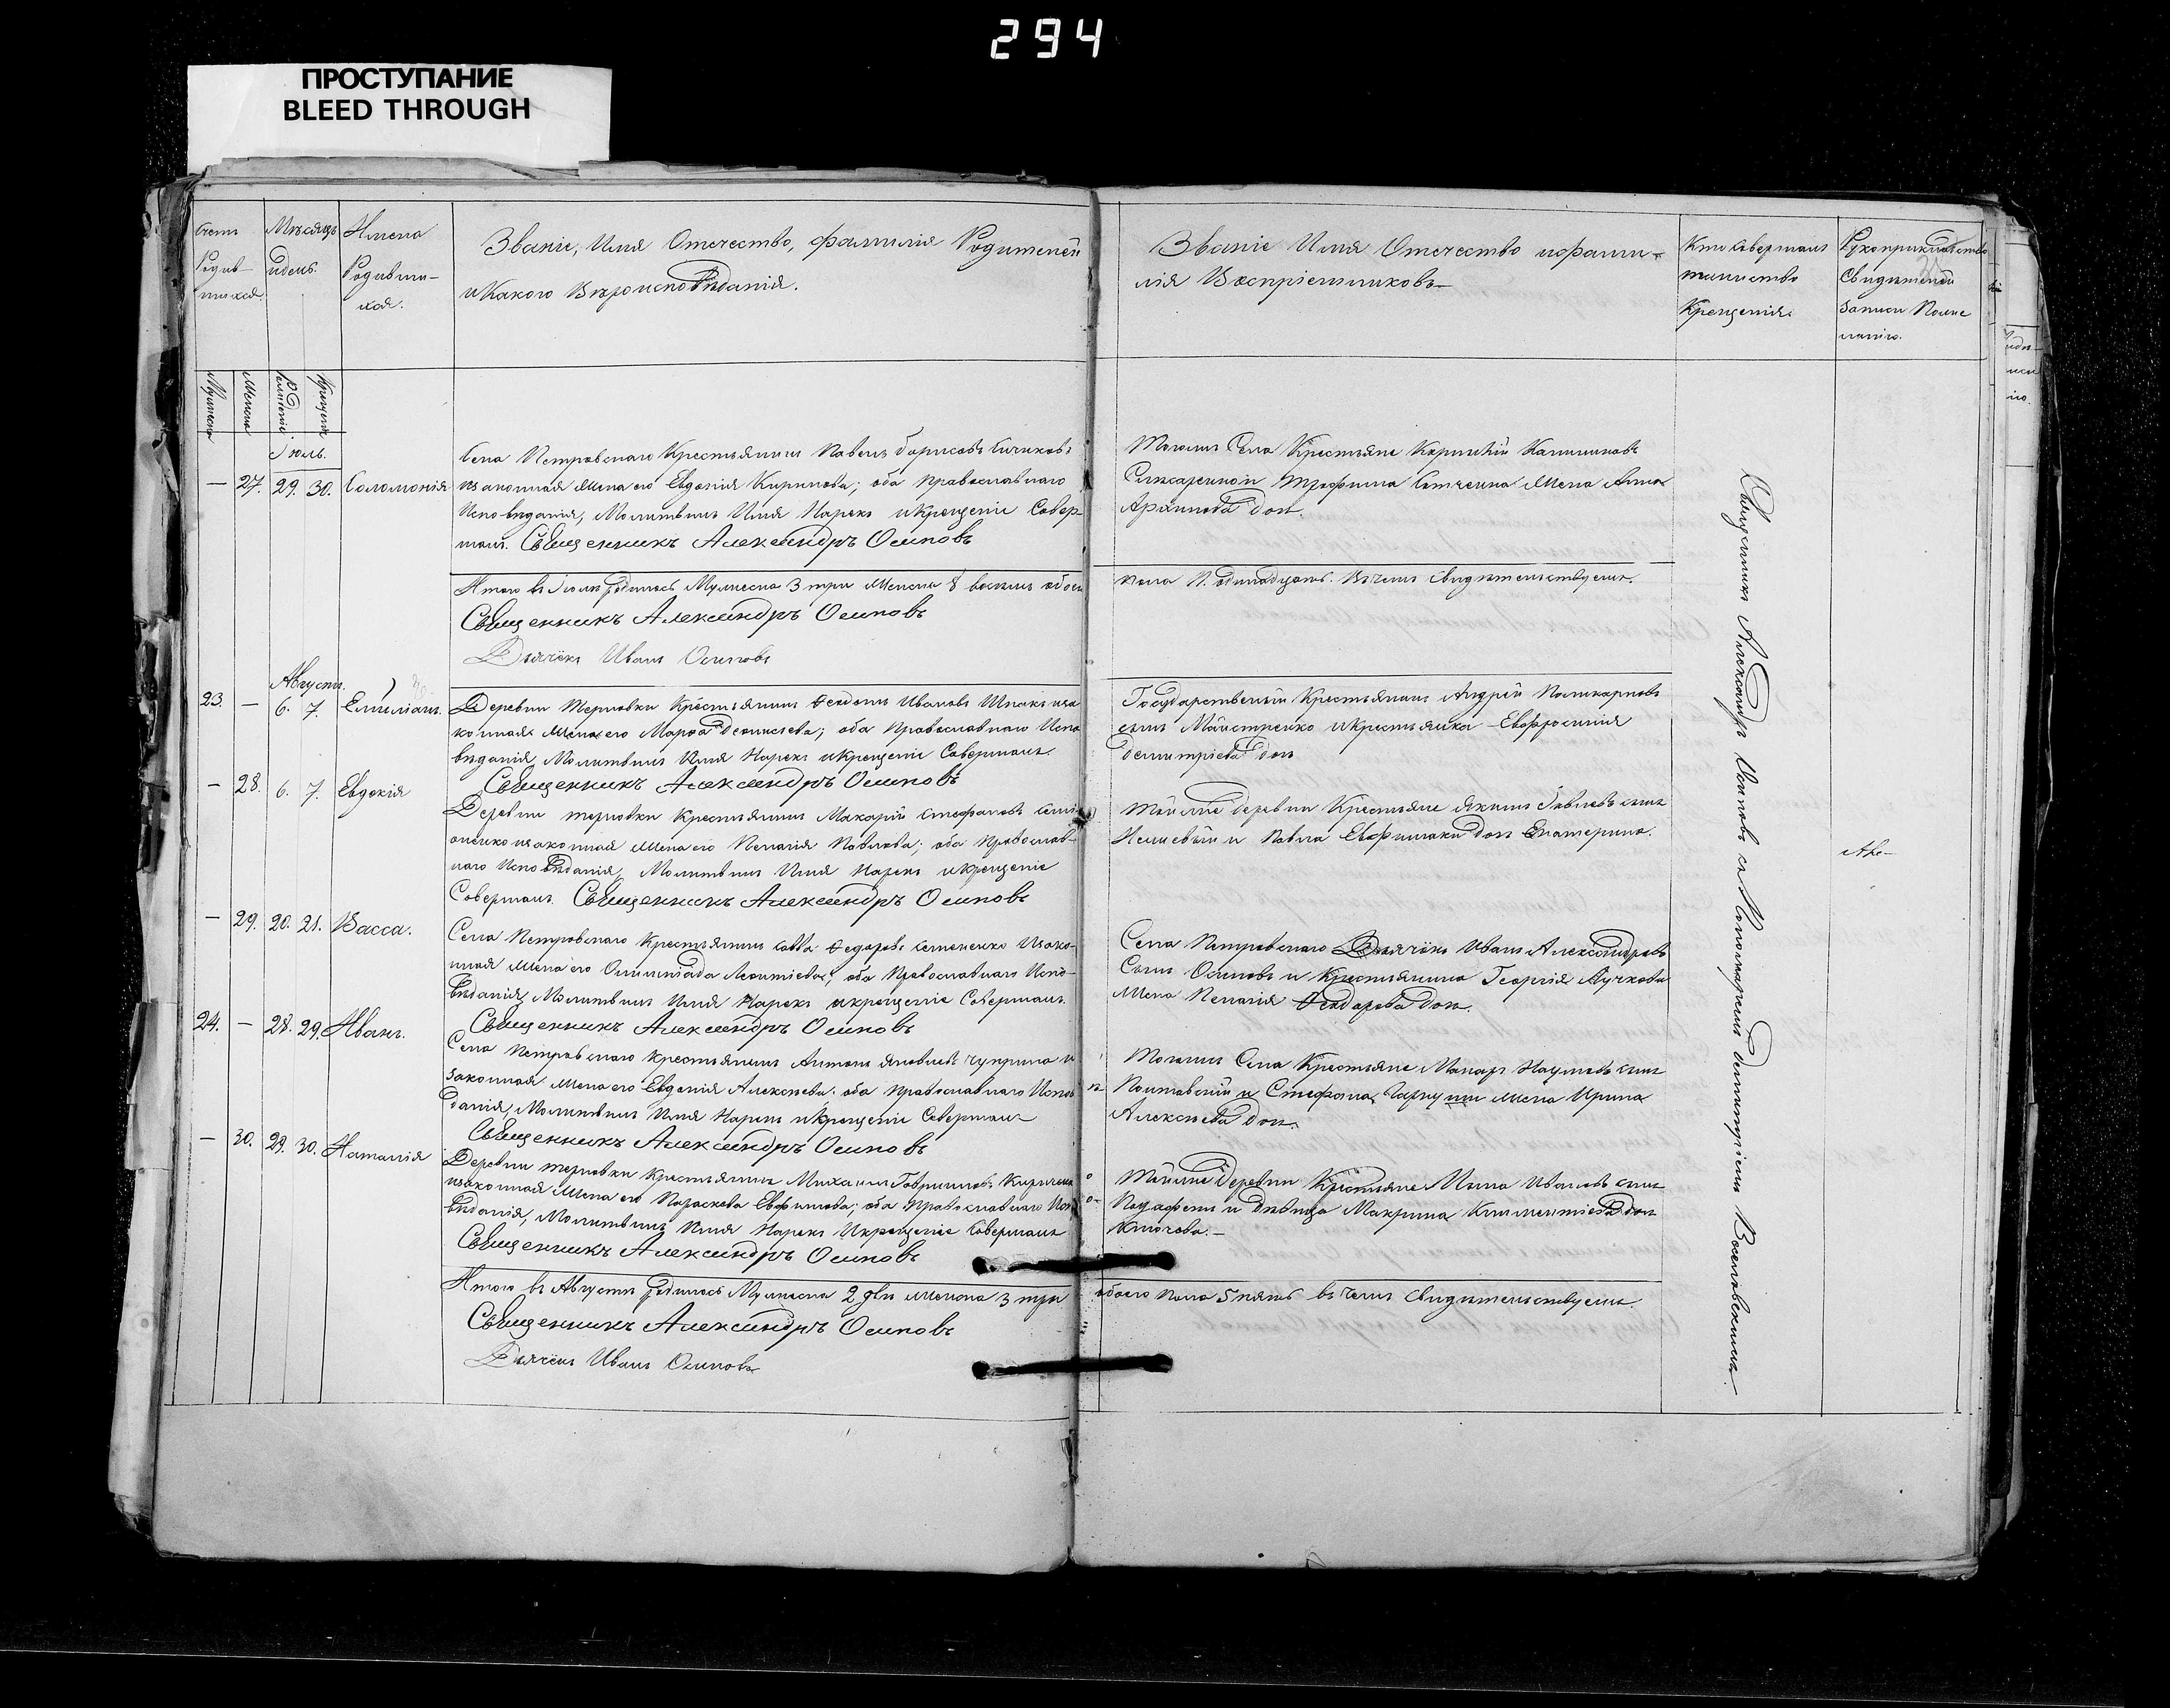 294
ПРОСТУПАНИЕ
BLEED THROUGH
Счетъ Родив-шихся.
Мѣсяцъ и день.
Имена Родивши-хся.
Званіе, Имя Отечество, фамилія Родителей
и Какого Вѣроисповѣданія.
Званіе Имя Отечество и фами-
лія Воспріемниковъ
Кто Совершалъ
таинство
Крещенія
Рукоприкладство
Свидѣтелей
записи По же
ланію.
Мужеска
Женска
Рожденіе
Крещенія
Іюль.
— 27. 29. 30. Соломонія
Села Петровскаго Крестьянинъ Павелъ Борисовъ
изаконная Жена его Евдокія Кирилова; оба православнаго
Исповѣданія, Молитвилъ Имя Нарекъ и Крещеніе Совер-
шалъ. Священникъ Александръ Осиповъ
Тогожъ Села Крестьяне
Трофима Жена Анна
Архипова дочь.
Итого въ Іюлѣ родилось Мужеска 3 три Женска 8 восемь обоего
пола 11. одинадцать. Въ чемъ Свидѣтельствуемъ.
Священникъ Александръ Осиповъ
Дьячёкъ Иванъ Осиповъ
Августъ.
23. — 6. 7. Емиліанъ.
Деревни Терновки Крестьянинъ Феодотъ Ивановъ иза
конная Жена его Марфа Денисьева; оба Православнаго Испо
вѣданія, Молитвилъ Имя Нарекъ и Крещеніе Совершалъ
Священникъ Александръ Осиповъ
Государственый Крестьянинъ Андрей Поликарповъ
сынъ Майстренко и Крестьянка Евфросинія
Демитріева дочь
— 28. 6. 7. Евдокія
Деревни терновки Крестьянинъ Макарій Стефановъ
изаконная Жена его Пелагія Павлова; оба Православ-
наго Исповѣданія, Молитвилъ Имя Нарекъ и Крещеніе
Совершалъ. Священникъ Александръ Осиповъ
Тойже деревни Крестьяне Якимъ сынъ
и Павла дочь Екатерина.
— 29. 20. 21. Васса.
Села Петровскаго Крестьянинъ Савва Федоровъ Семененко Изако-
нная Жена его Олимпіада Леонтіева, оба Православнаго Испо-
вѣданія, Молитвилъ Имя Нарекъ и крещеніе Совершалъ.
Священникъ Александръ Осиповъ
Села Петровскаго Дьячёкъ Иванъ Александровъ
Сынъ Осиповъ и Крестьянина Георгія Лучкова
Жена Пелагія Феодорова дочь.
24. — 28. 29. Иванъ.
Села Петровскаго крестьянинъ Антонъ Яковлевъ Чуприна и
законная Жена его Евдокія Алексѣева; оба православнаго Исповѣ
данія, Молитвилъ Имя Нарекъ и Крещеніе Совершалъ
Священникъ Александръ Осиповъ
Тогожъ Села Крестьяне Макаръ Наумовъ сынъ
Полтавскій и Стефана Жена Ирина
Алексѣева дочь.
— 30. 29. 30. Наталія
Деревни терновки Крестьянинъ Михаилъ Гавриловъ
изаконная Жена его Параскева Евфимова; оба Православнаго Испо-
вѣданія, Молитвилъ Имя Нарекъ Икрещеніе Совершалъ
Священникъ Александръ Осиповъ
Тойже деревни Крестьяне Мина Ивановъ сынъ
и дѣвица Макрина Климентіева дочь
Клочева.—
Итого въ Августѣ родилось Мужеска 2 два женска 3 три
обоего пола 5 пять въ чемъ Свидѣтельствуемъ.
Священникъ Александръ Осиповъ
Дьячёкъ Иванъ Осиповъ
Священникъ Александръ Осиповъ съ Пономаремъ Димитріемъ